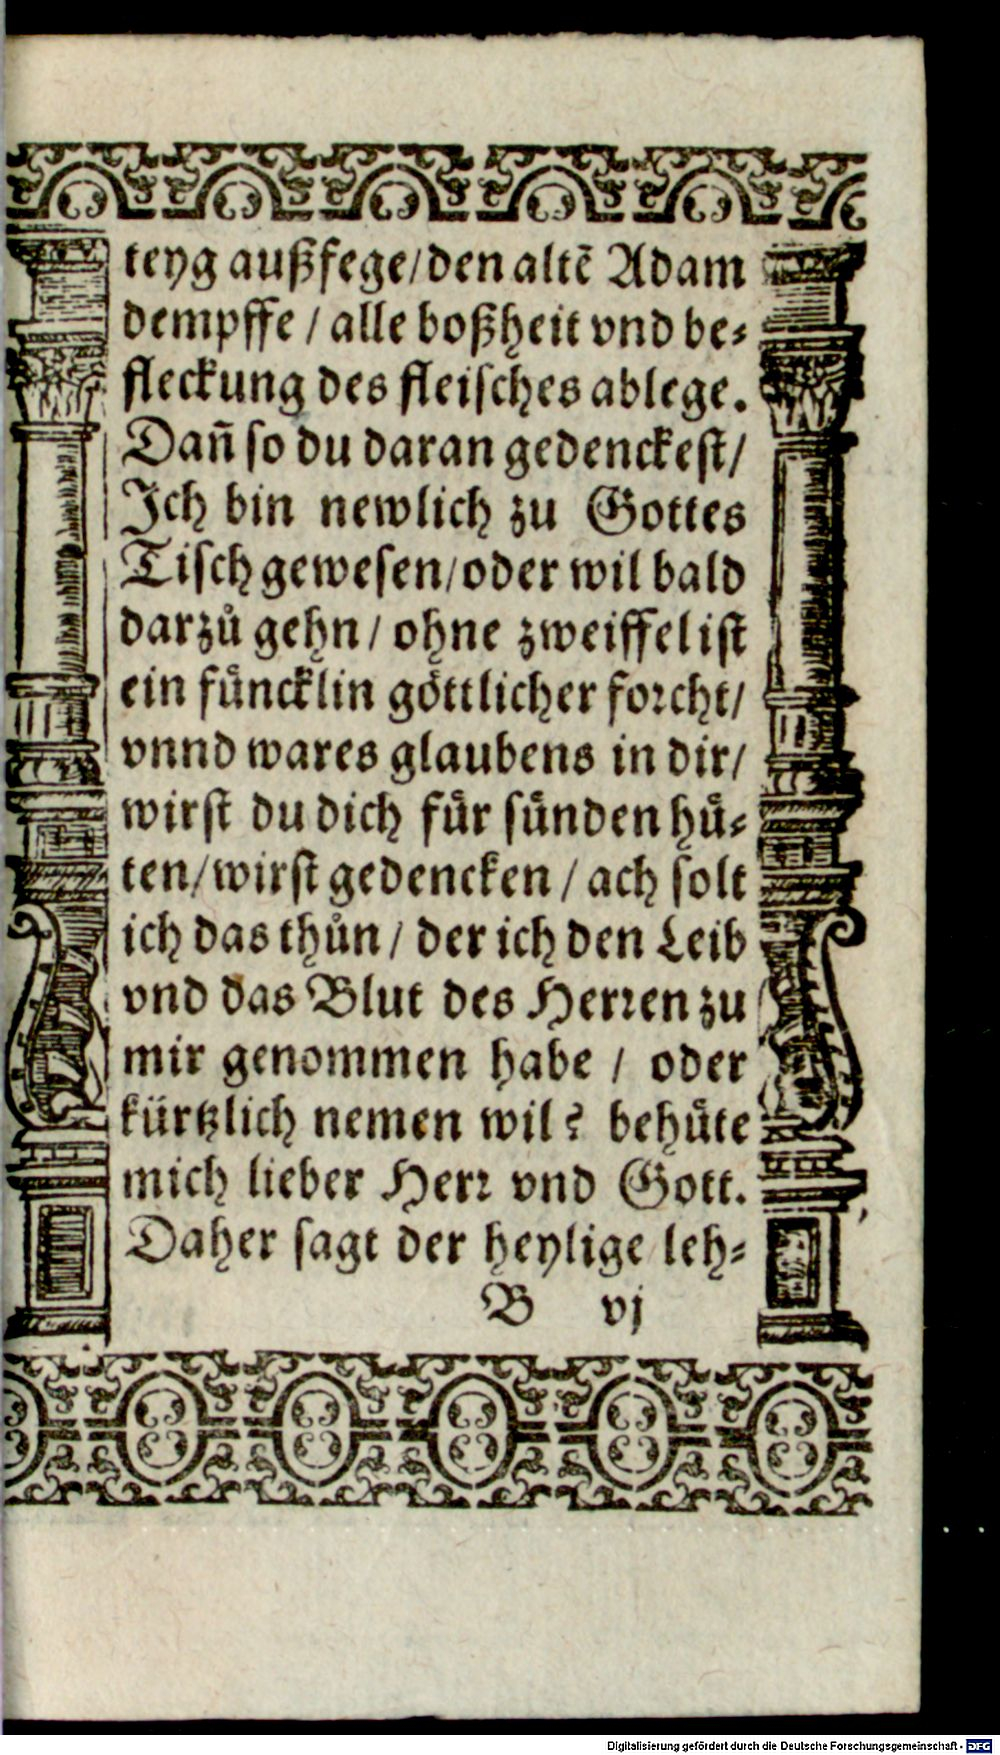 teyg außfege/den altē Adam
dempffe / alle boßheit vnd be⸗
fleckung des fleisches ablege.
Dañ so du daran gedenckest/
Ich bin newlich zu Gottes
Tisch gewesen/oder wil bald
darzů gehn / ohne zweiffel ist
ein fůncklin göttlicher forcht/
vnnd wares glaubens in dir/
wirst du dich fůr sůnden hů⸗
ten/wirst gedencken / ach solt
ich das thůn / der ich den Leib
vnd das Blut des Herren zu
mir genommen habe / oder
kürtzlich nemen wil? behůte
mich lieber Herr vnd Gott.
Daher sagt der heylige leh⸗
B vj
Digitalisierung gefördert durch die Deutsche Forschungsgemeinschaft - DFG